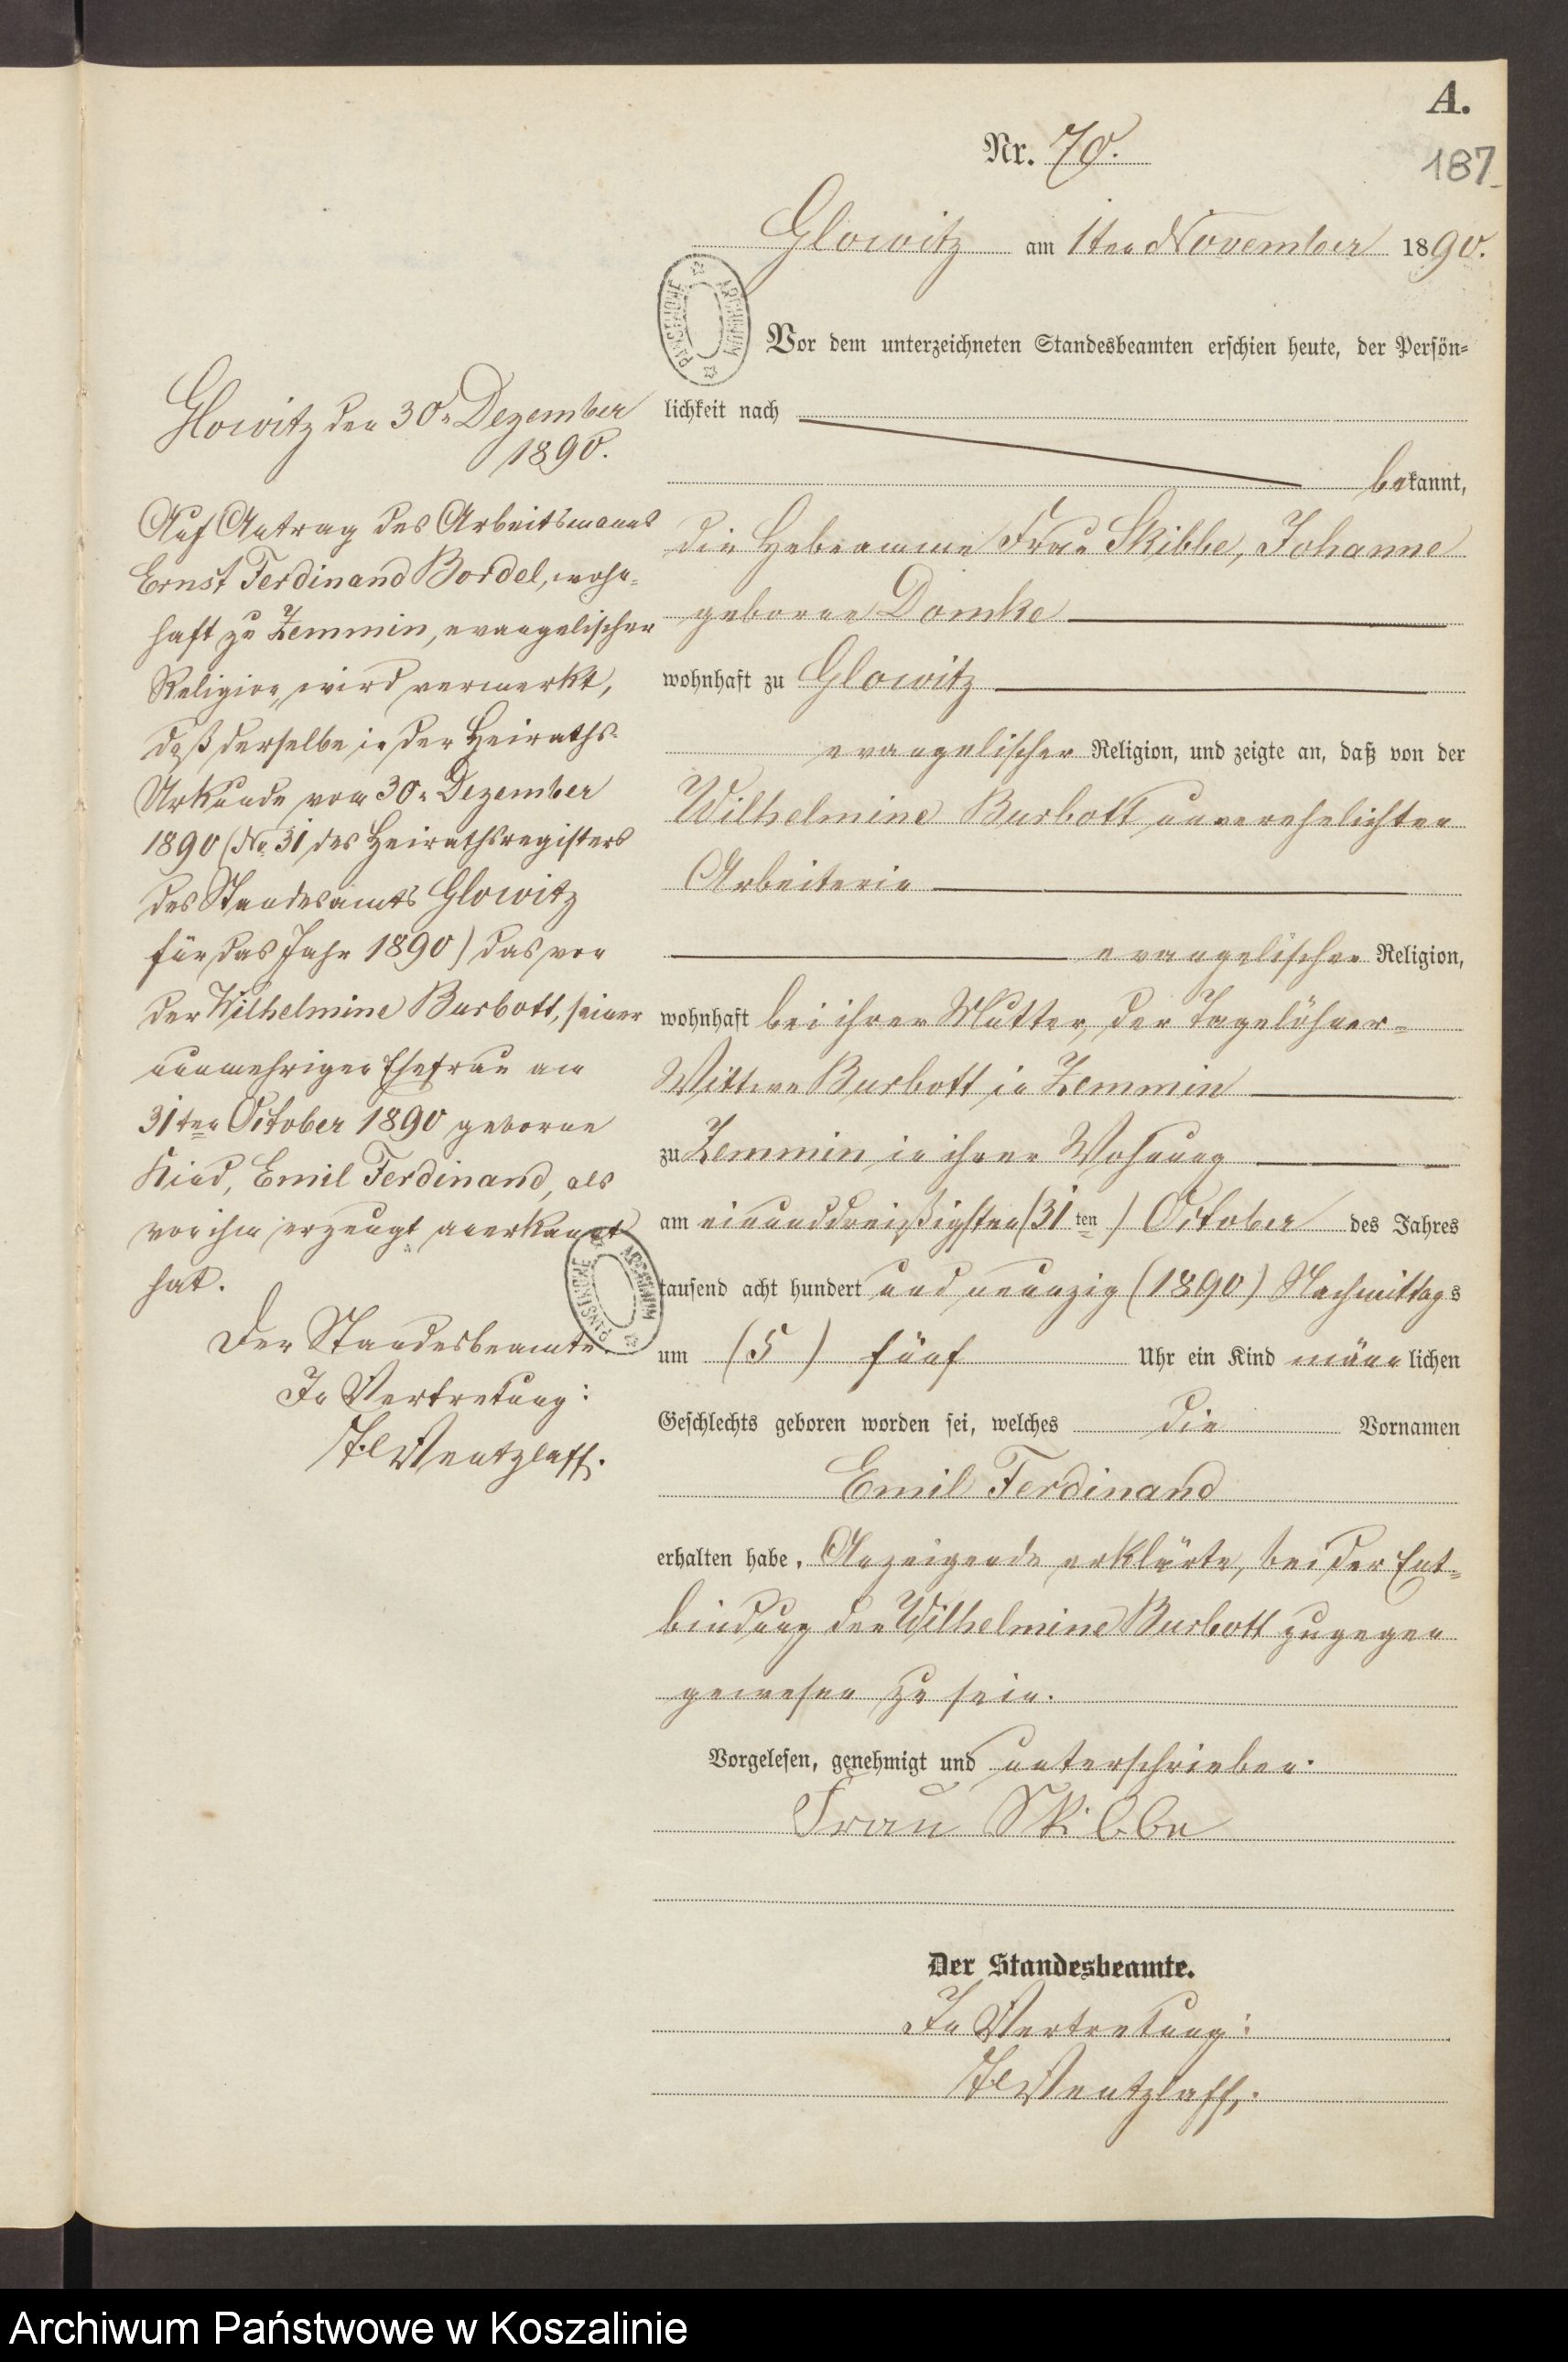 A.
Nr. 70.
187
Glowitz am 1ten November 1890.
Vor dem unterzeichneten Standesbeamten erschien heute, der Persön-
lichkeit nach
bekannt,
die Hebeamme Frau Skibbe, Johanne
geborne Domke
wohnhaft zu Glowitz
evangelischer Religion, und zeigte an, daß von der
Wilhelmine Burbott unverehelichten
Arbeiterin
evangelischer Religion,
wohnhaft bei ihrer Mutter, der Tagelöhner-
Wittwe Burbott in Zemmin
zu Zemmin in ihrer Wohnung
am einunddreißigsten (31ten) October des Jahres
tausend acht hundert und neunzig (1890) Nachmittags
um (5) fünf Uhr ein Kind männlichen
Geschlechts geboren worden sei, welches die Vornamen
Emil Ferdinand
erhalten habe. Anzeigende erklärte, bei der Ent-
bindung der Wilhelmine Burbott zugegen
gewesen zu sein.
Vorgelesen, genehmigt und unterschrieben.
Frau Skibbe
Der Standesbeamte.
In Vertretung:
Wentzlaff.
Glowitz den 30n Dezember
1890.
Auf Antrag des Arbeitsmanns
Ernst Ferdinand Bordel, wohn-
haft zu Zemmin, evangelischer
Religion, wird vermerkt,
daß derselbe in der Heiraths-
Urkunde vom 30n Dezember
1890 (No 31 des Heirathsregisters
des Standesamts Glowitz
für das Jahr 1890) das von
der Wilhelmine Burbott, seiner
nunmehrigen Ehefrau am
31ten October 1890 geborne
Kind, Emil Ferdinand, als
von ihm erzeugt anerkannt
hat.
Der Standesbeamte.
In Vertretung:
Wentzlaff.
ARCHIWUM PAŃSTWOWE
ARCHIWUM PAŃSTWOWE
Archiwum Państwowe w Koszalinie